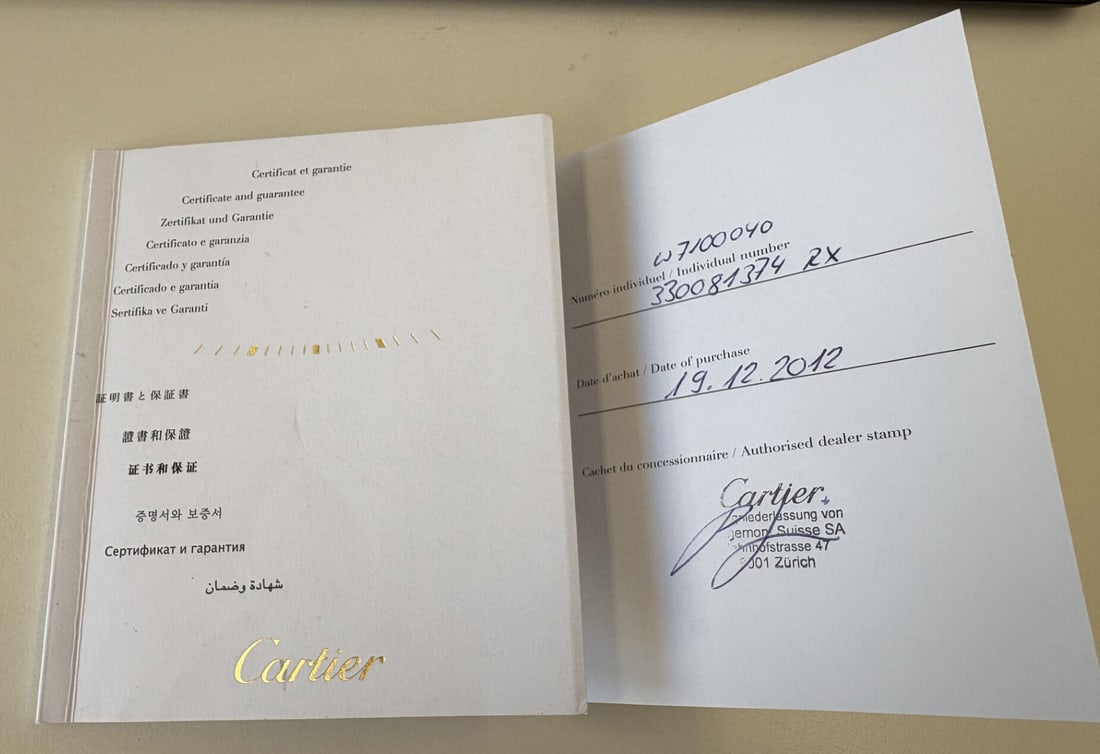 Certificat et garantie
Certificate and guarantee
Zertifikat und Garantie
Certificato e garanzia
Certificado y garantía
Certificado e garantia
Sertifika ve Garanti
証明書と保証書
證書和保證
证书和保证
증명서와 보증서
Сертификат и гарантия
شهادة وضمان
Cartier
W7100040
Numéro individuel / Individual number
330081374 RX
Date d'achat / Date of purchase
19.12.2012
Cachet du concessionnaire / Authorised dealer stamp
Cartier
von
Suisse SA
47
Zürich